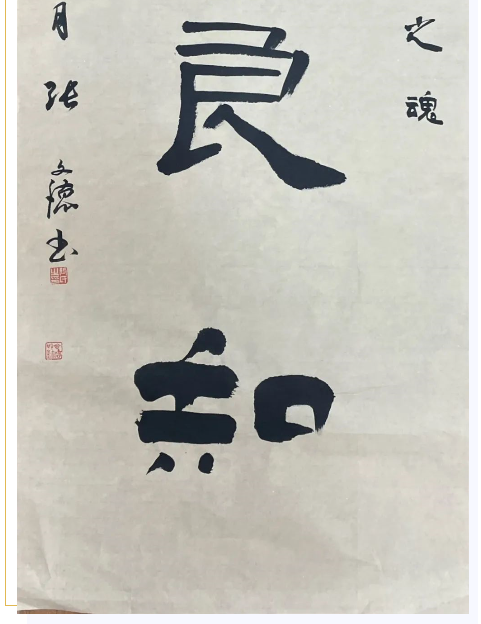 之魂
良知
月张文德书